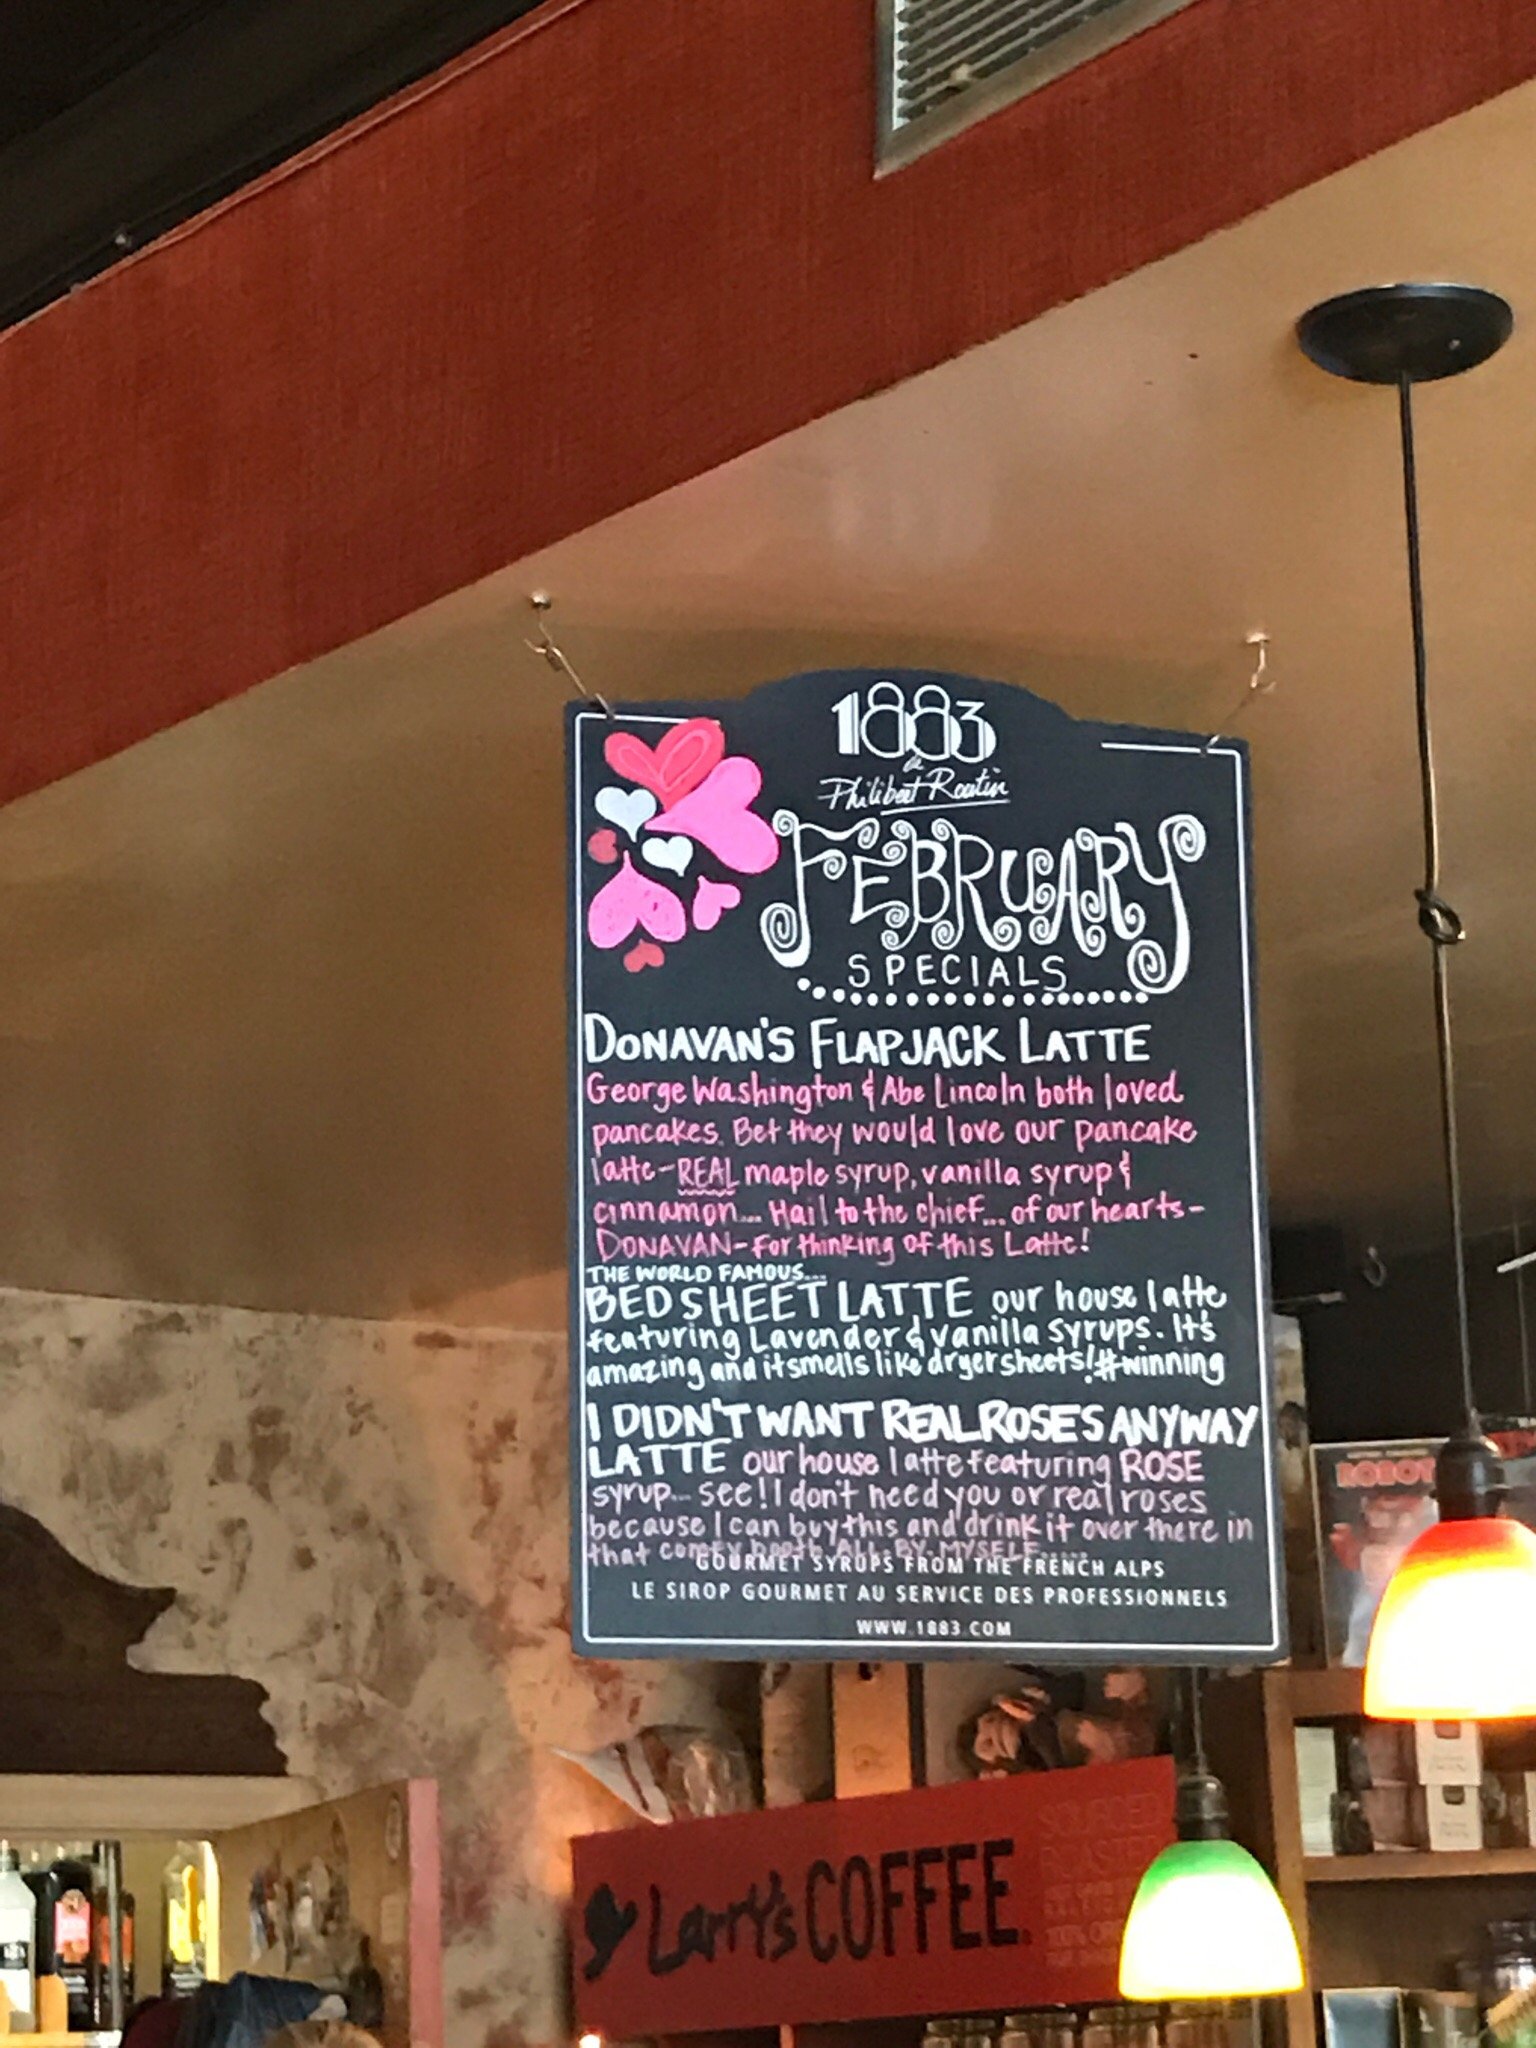 1883
de
Philibert Routin
FEBRUARY
SPECIALS
DONAVAN'S FLAPJACK LATTE
George Washington & Abe Lincoln both loved
pancakes. Bet they would love our pancake
latte-REAL maple syrup, vanilla syrup &
cinnamon... Hail to the chief... of our hearts-
DONAVAN-For thinking of this Latte!
THE WORLD FAMOUS...
BED SHEET LATTE our house latte
featuring Lavender & vanilla syrups. It's
amazing and it smells like dryer sheets! #winning
I DIDN'T WANT REAL ROSES ANYWAY
LATTE our house latte featuring ROSE
syrup... see! I don't need you or real roses
because I can buy this and drink it over there in
that comfy booth ALL BY MYSELF.....
GOURMET SYRUPS FROM THE FRENCH ALPS
LE SIROP GOURMET AU SERVICE DES PROFESSIONNELS
WWW.1883.COM
ROBOT
Larry's COFFEE